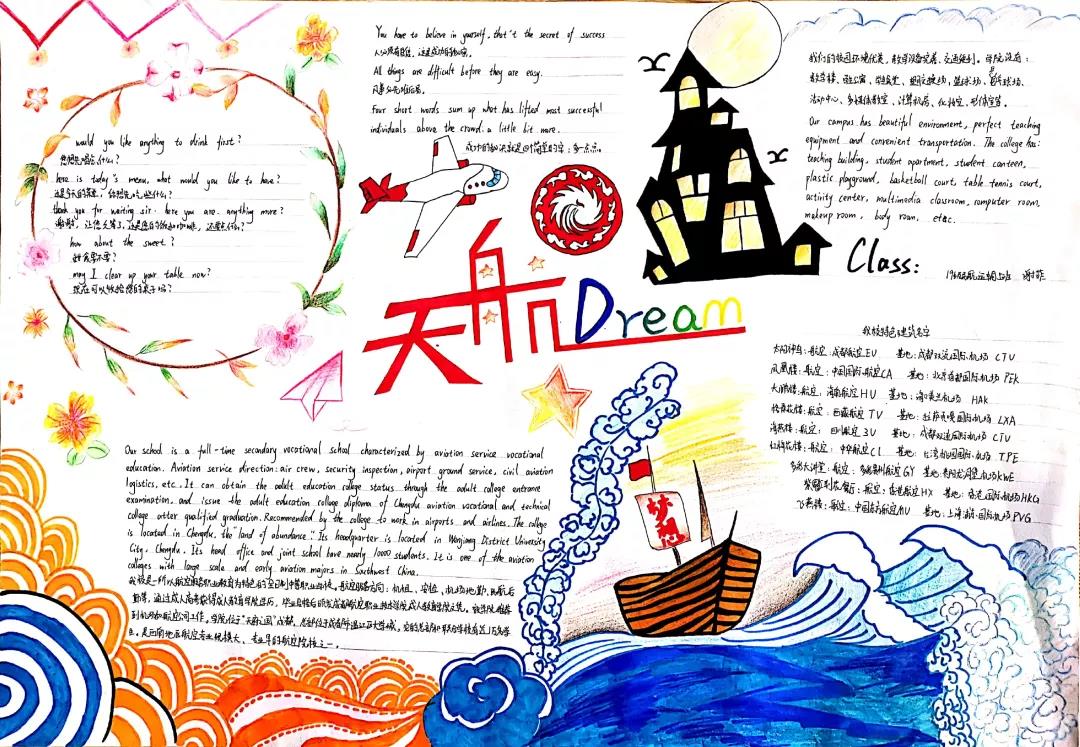 would you like anything to drink first?
您想先喝点什么?
here is today's menu, what would you like to have?
这是今天的菜单, 您想先吃些什么?
thank you for waiting sir. here you are. anything more?
谢谢, 让您久等了,
how about the sweet?
甜食要不要?
may I clear up your table now?
现在可以收拾您的桌子吗?
You have to believe in yourself, that't the secret of success
人必须有自信, 这是成功的秘密。
All things are difficult before they are easy.
凡事必先难后易。
Four short words sum up what has lifted most successful
individuals above the crowd: a little bit more.
成功的秘诀就是四个简单的字: 多一点点。
天航Dream
我们的校园环境优美, 教学设备完善, 交通便利。学院设有:
教学楼、学生公寓、学生食堂、塑胶运动场、篮球场、乒乓球场、
活动中心、多媒体教室、计算机房、化妆室、形体室等。
Our campus has beautiful environment, perfect teaching
equipment and convenient transportation. The college has:
teaching building, student apartment, student canteen,
plastic playground, basketball court, table tennis court,
activity center, multimedia classroom, computer room,
makeup room, body room, etc.
Class:
我校特色建筑名字
航空: 成都航空EU 基地: 成都双流国际机场 CTU
凤凰楼: 航空: 中国国际航空CA 基地: 北京首都国际机场 PEK
大鹏楼: 航空: 海南航空HU 基地: 海口美兰机场 HAK
格桑花楼: 航空: 西藏航空 TV 基地: 拉萨贡嘎国际机场 LXA
海燕楼: 航空: 四川航空 3U 基地: 成都双流国际机场 CTU
红梅花楼: 航空: 中华航空CI 基地: 台湾桃园国际机场 TPE
多彩大讲堂: 航空: 多彩贵州航空GY 基地: 贵阳龙洞堡机场KWE
航空: 香港航空HX 基地: 香港国际机场HKG
飞燕楼: 航空: 中国东方航空MU 基地: 上海浦东国际机场PVG
Our school is a full-time secondary vocational school characterized by aviation service vocational
education. Aviation service direction: air crew, security inspection, airport ground service, civil aviation
logistics, etc. It can obtain the adult education college status through the adult college entrance
examination, and issue the adult education college diploma of Chengdu aviation vocational and technical
college after qualified graduation. Recommended by the college to work in airports and airlines. The college
is located in Chengdu, "the land of abundance." Its headquarter is located in Wenjiang District University
City, Chengdu. Its head office and joint school have nearly 10000 students. It is one of the aviation
colleges with large scale and early aviation majors in Southwest China.
我校是一所以航空服务职业教育为特色的全日制中等职业学校。航空服务方向: 机乘、安检、机场地勤、民航后
勤等, 通过成人高考获得成人教育学院学历, 毕业合格后颁发成都航空职业技术学院成人教育学院文凭。由学院推荐
到机场和航空公司工作。学院位于"天府之国"成都, 总部位于成都市温江区大学城,
是西南地区航空专业规模大、专业早的航空院校之一。
梦想